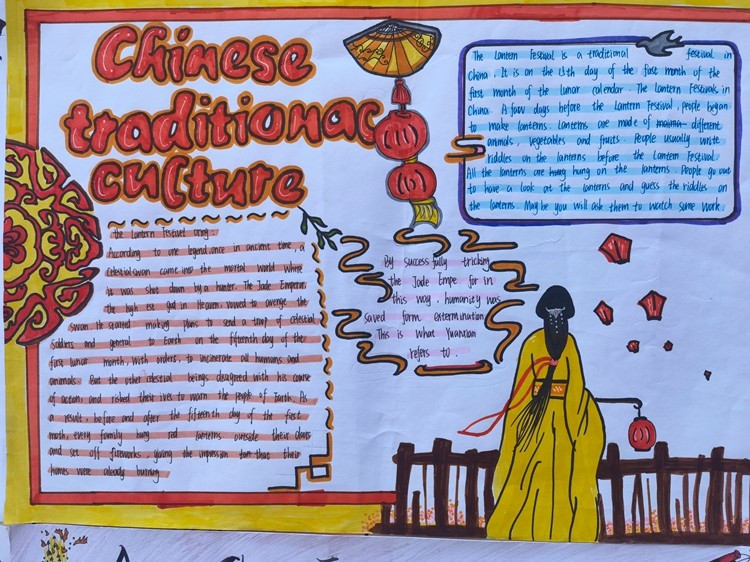 Chinese
traditional
culture
The Lantern Festival is a traditional festival in
China. It is on the 15th day of the first month of the
first month of the lunar calendar. The Lantern Festivals in
China. A few days before the Lantern Festival, people began
to make lanterns. Lanterns are made of different
animals, vegetables and fruits. People usually write
riddles on the lanterns before the Lantern Festival.
All the lanterns are hung on the lanterns. People go out
to have a look at the lanterns and guess the riddles on
the lanterns. May be you will ask them to watch some work.
the Lantern Festivel orng
According to one legend, once in ancient time, a
celestial swan came into the mortal world where
it was shot down by a hunter. The Jade Emperor,
the high est god in Heaven, vowed to avenge the
swan. He started making plans to send a troop of celestial
soldiers and general to Earth on the fifteenth day of the
first lunar month, with orders to incinerate all humans and
animals. But the other celestial beings disagreed with his course
of action, and risked their lives to warn the people of Earth. As
a result, before and after the fifteenth day of the first
moth, every family hung red lanterns outside their doors
and set off fireworks, giving the impression that their
homes were already burning.
By success fully tricking
the Jade Empe for in
this way, humanity was
saved form extermination
This is what Yuanxian
refers to.